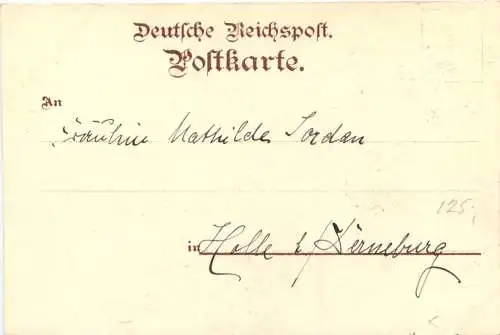 Deutsche Reichspost.
Postkarte.
An
Fräulein Mathilde Jordan
125,
in Holle b/Derneburg